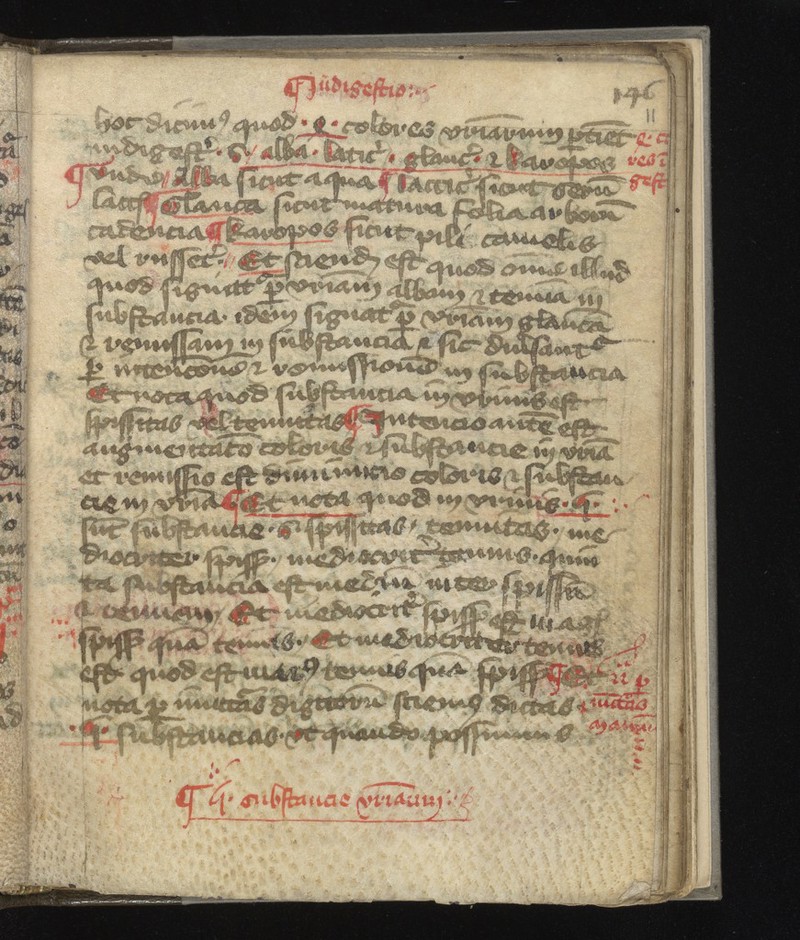 ¶ Indigestio
146
11
hoc dicimꝰ quod · q · colores vrinarum ptiet
indigest · s · alba · latic · glauc · ⁊ karopos
vnde Alba sicut aqua ¶ lactic sicut serū
lactis ¶ Glauca sicut matura folia arborū
cadencia ¶ karopos sicut pili camelis
vel russet · Et sciend est quod omne illud
quod signat p vrinam albam ⁊ tenuā in
substancia · idem signat p vrinam glaucā
⁊ remissam in substancia ⁊ sic
p intencionē ⁊ remissionē in substancia
Et nota quod substancia in vrinis est
spissitas vel tenuitas ¶ Intencio autē est
augmentatō coloris ⁊ substancie in vrīa
et remissio est diminucio coloris ⁊ substan
cie in vrina ¶ Et nota quod in vrinis · q ·
sūt substancie · s · spissitas · tenuitas · me
diocriter spiss · mediocrit tenuis · quin
ta substancia est mediū inter spissū
⁊ tenuem · Et mediocrit spiss est magꝭ
spiss quā tenuis · Et mediocriter tenuis
est quod est magꝭ tenuis quā spiss ¶ Et
nota p digitorū sciemꝰ dictas
· q · substancias · vt quando possimus
¶ q · substancie vrinarum